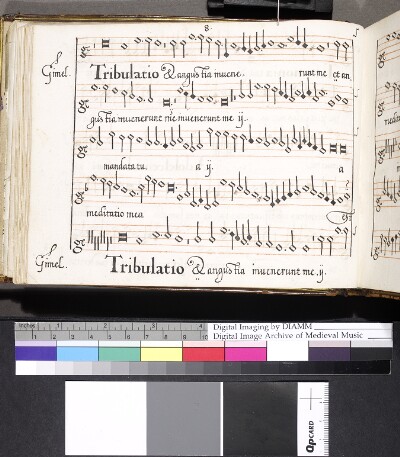 8.
S
Gimel. Tribulatio & angustia muene. runt me et an,
gustia muenerunt me muenerunt me ij.
mandata tu. a ij. a
meditatio mea est
S
Gimel. Tribulatio & angustia inuenerunt me .ij.
Inches 1 2 3 4
Digital Imaging by DIAMM
Digital Image Archive of Medieval Music
QPCARD